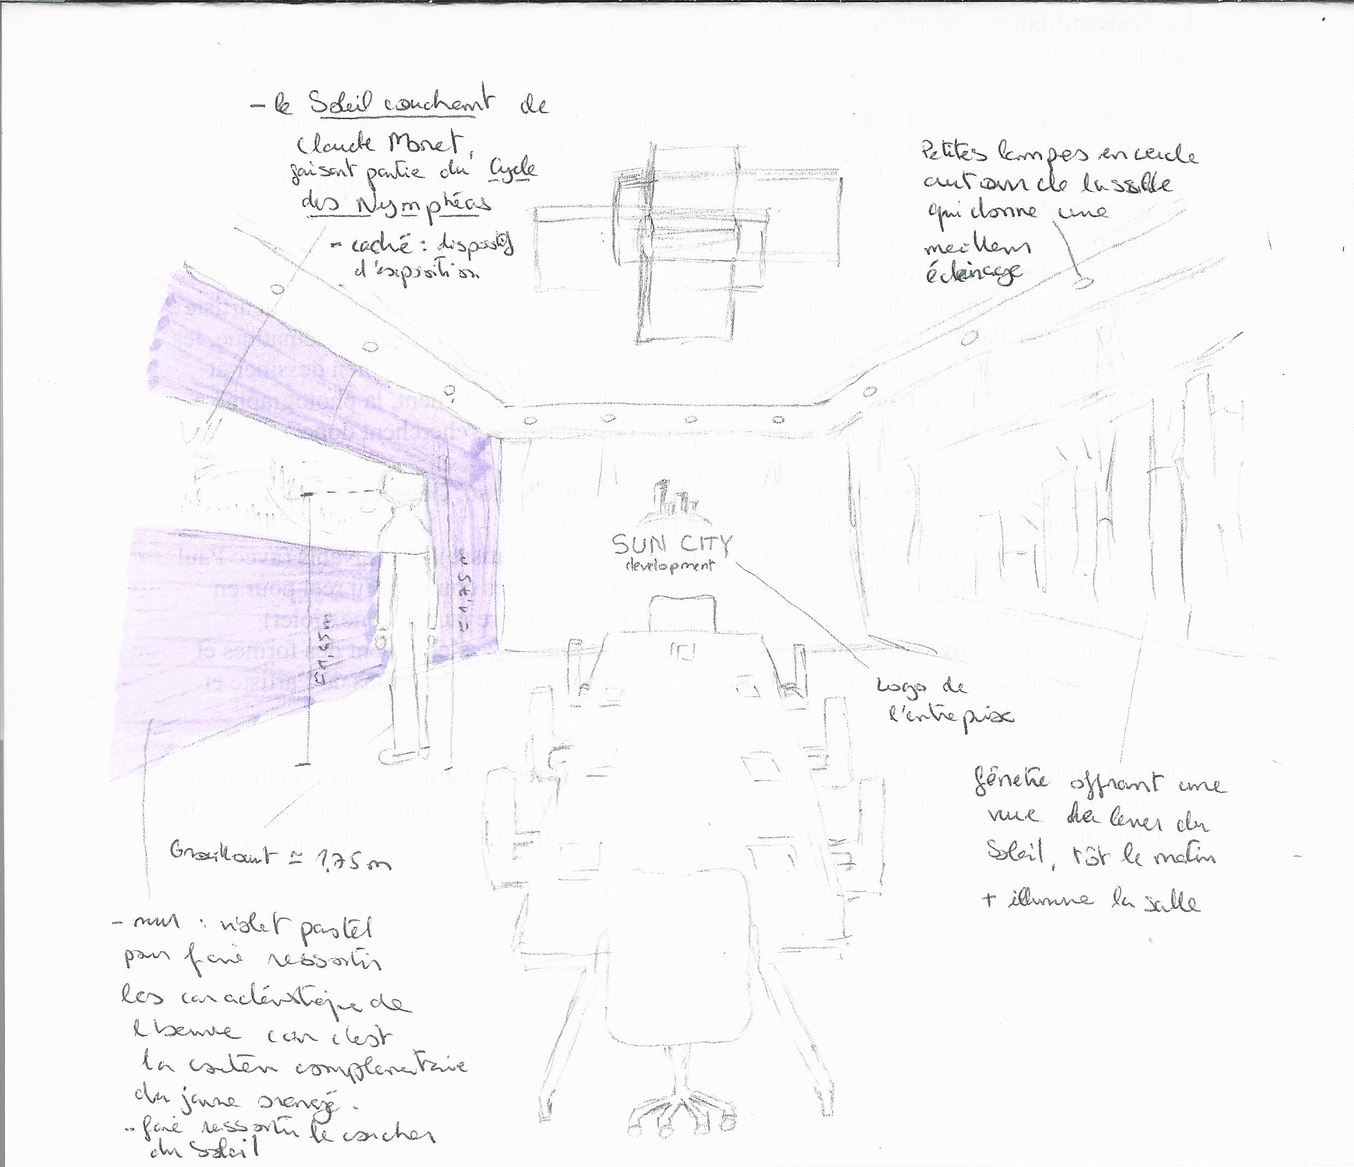 - le Soleil couchant de
Claude Monet,
faisant partie du Cycle
des Nymphéas
- caché : dispositif
d'exposition
Petites lampes en cercle
autour de la salle
qui donne une
meilleur
éclairage
SUN CITY
development
= 1,65 m
= 1,75 m
Logo de
l'entreprise
fenêtre offrant une
vue du lever du
Soleil, tôt le matin
+ illumine la salle
≃ 1,75 m
- mur : violet pastel
pour faire ressortir
les caractéristique de
l'oeuvre car c'est
la couleur complementaire
du jaune orangé.
- faire ressortir le coucher
du Soleil